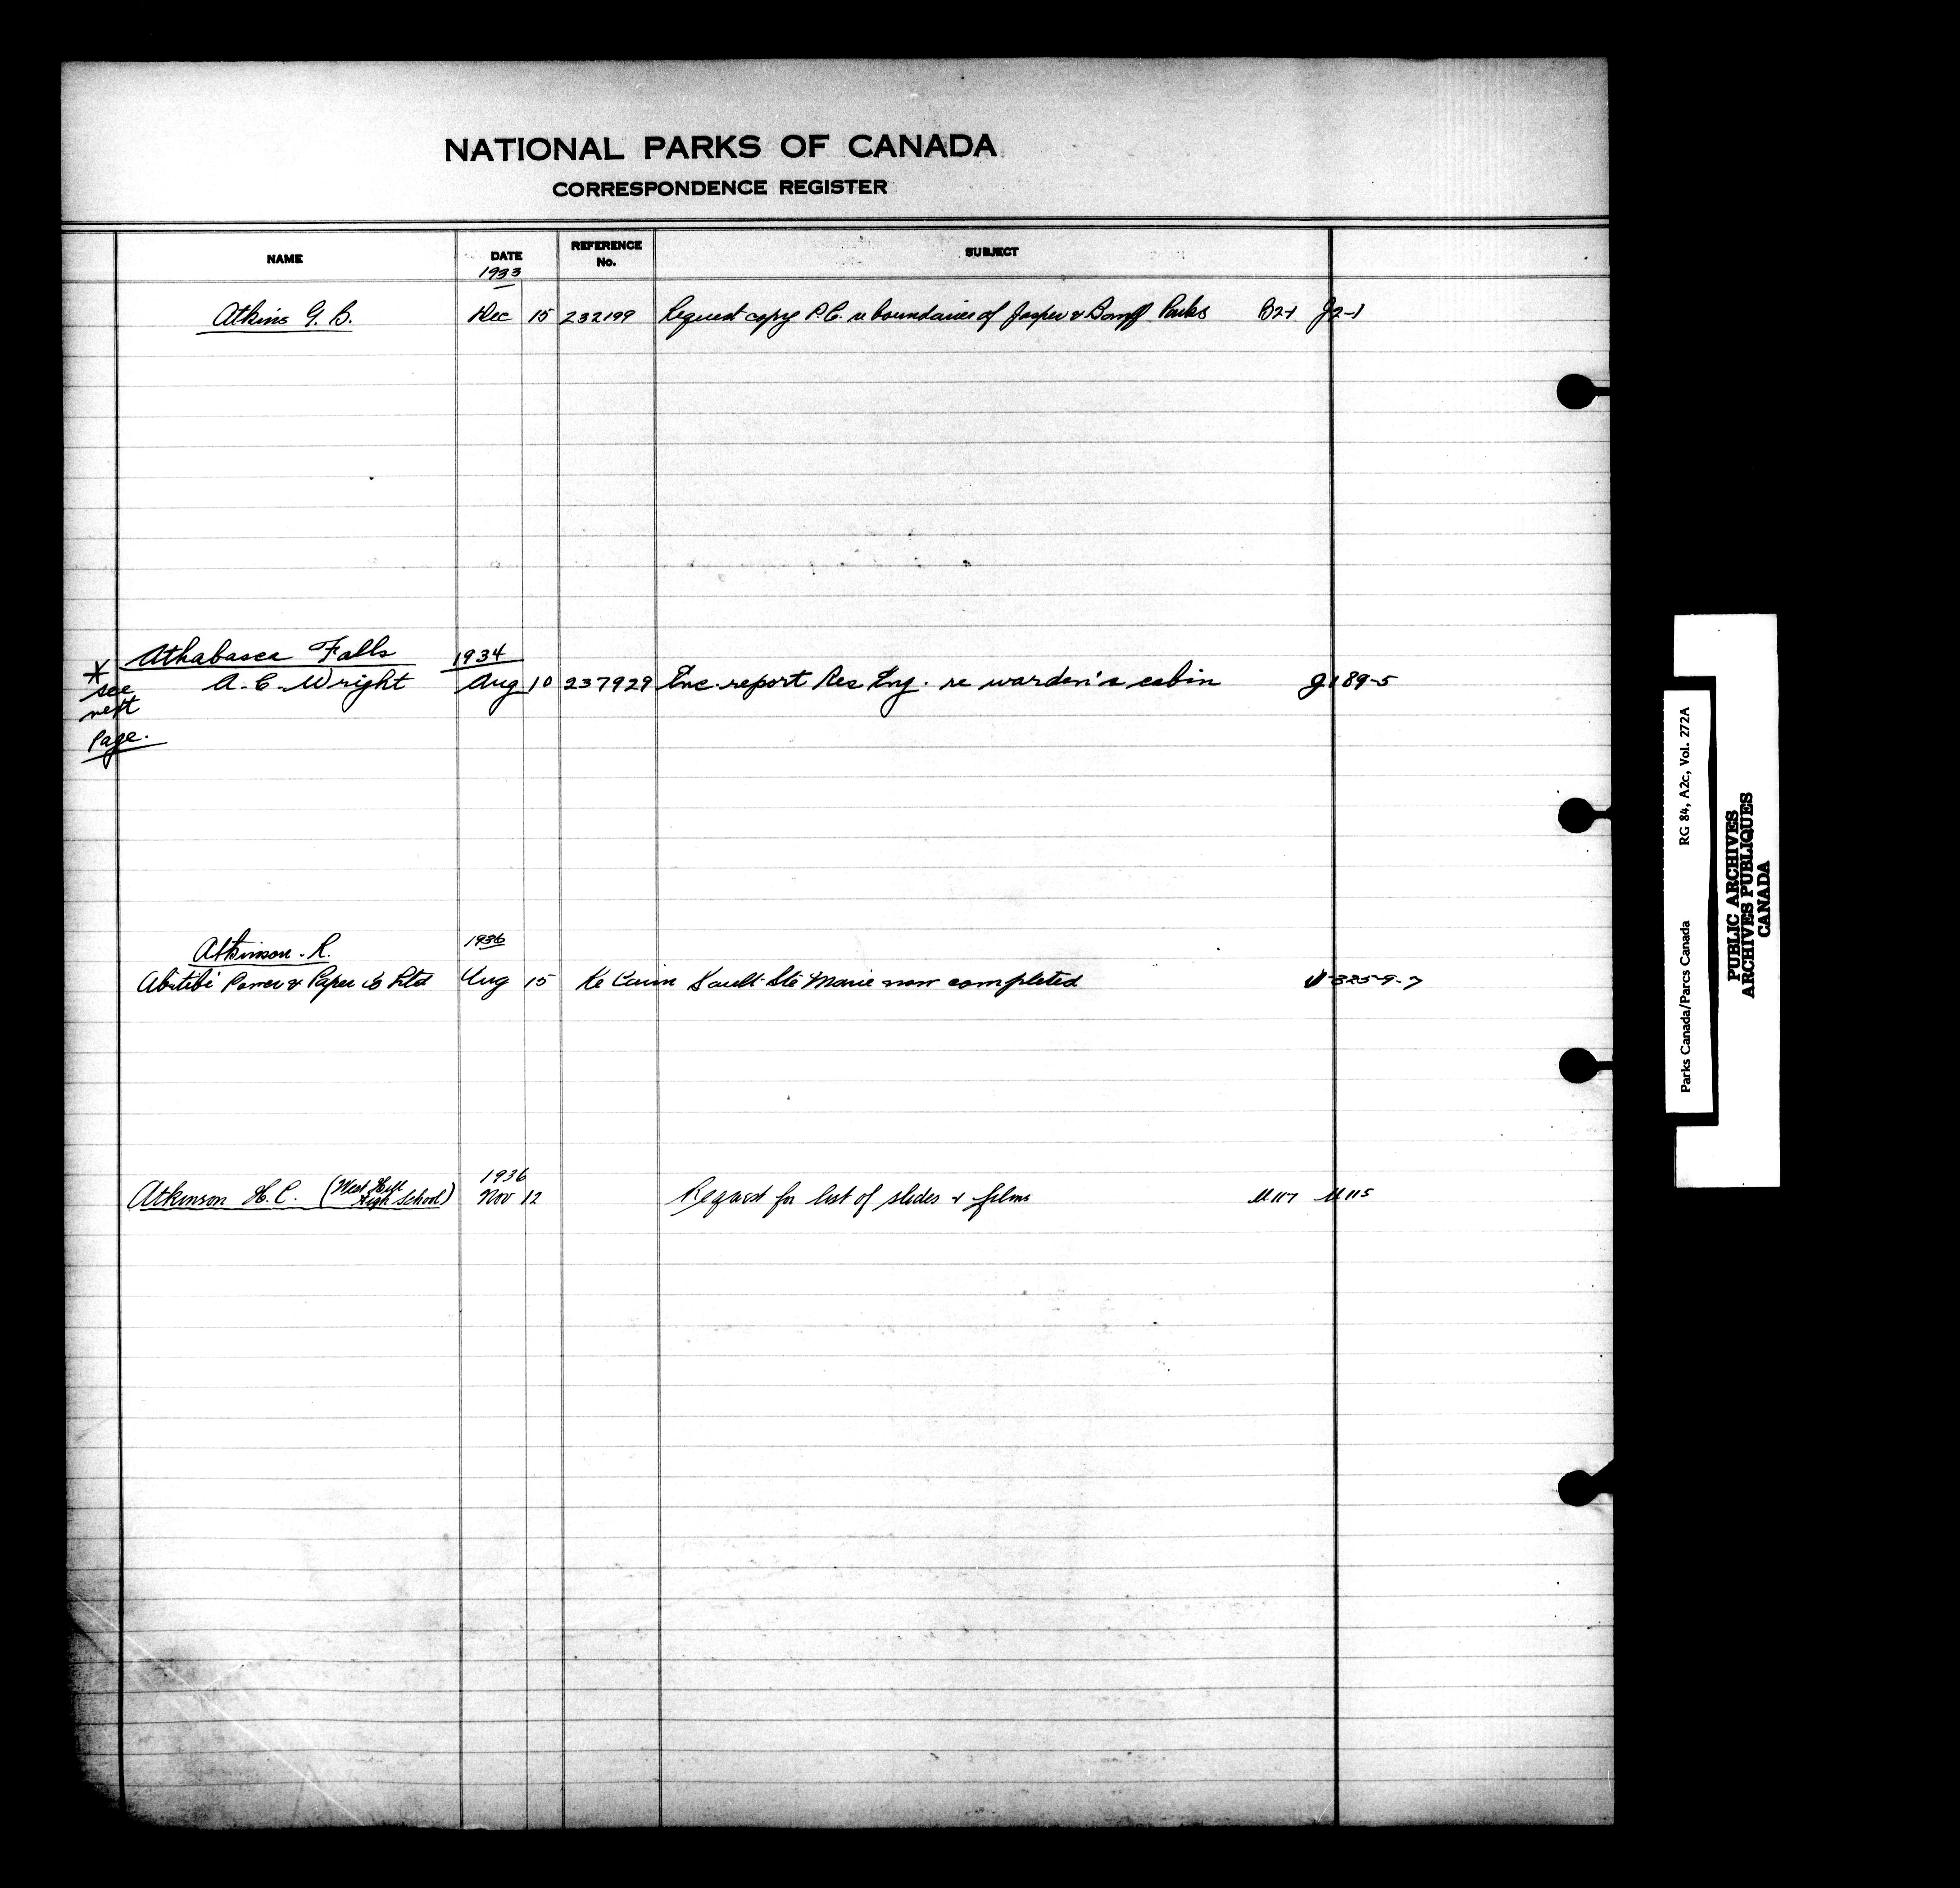 NATIONAL PARKS OF CANADA
CORRESPONDENCE REGISTER
NAME DATE REFERENCE No. SUBJECT
1933
Atkins G. B. Dec 15 232199 Request copy P.C. re boundaries of Jasper & Banff Parks B2-1 J2-1
Athabasca Falls 1934
A. C. Wright Aug 10 237929 Enc. report Res Eng. re warden's cabin J189-5
* see
next
page.
Atkinson R. 1936
Abitibi Power & Paper Co Ltd Aug 15 Re Cairn Sault Ste Marie now completed 325-9-7
1936
Atkinson H. C. (West Hill High School) Nov 12 Request for list of slides & films U117 U115
Parks Canada/Parcs Canada RG 84, A2c, Vol. 272A
PUBLIC ARCHIVES
ARCHIVES PUBLIQUES
CANADA